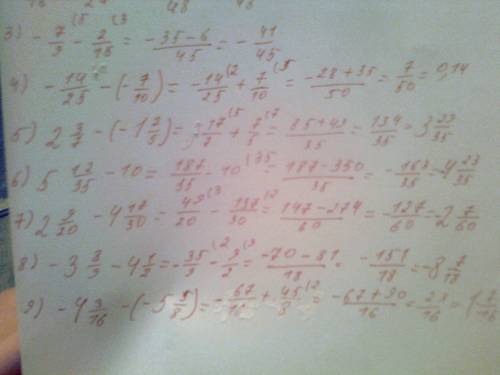 3) - 7/9 (5 - 2/15 (3 = -35-6/45 = - 41/45
4) - 14/25 - (- 7/10) = -14/25 (2 + 7/10 (5 = -28+35/50 = 7/50 = 0,14
5) 2 3/7 - (-1 2/5) = 17/7 (5 + 7/5 (7 = 85+49/35 = 134/35 = 3 29/35
6) 5 12/35 - 10 = 187/35 - 10 (35 = 187-350/35 = - 163/35 = -4 23/35
7) 2 9/20 - 4 17/30 = 49/20 (3 - 137/30 (2 = 147-274/60 = -127/60 = -2 7/60
8) -3 8/9 - 4 1/2 = - 35/9 (2 - 9/2 (9 = -70-81/18 = -151/18 = -8 7/18
9) -4 3/16 - (-5 5/8) = - 67/16 + 45/8 (2 = -67+90/16 = 23/16 = 1 7/16